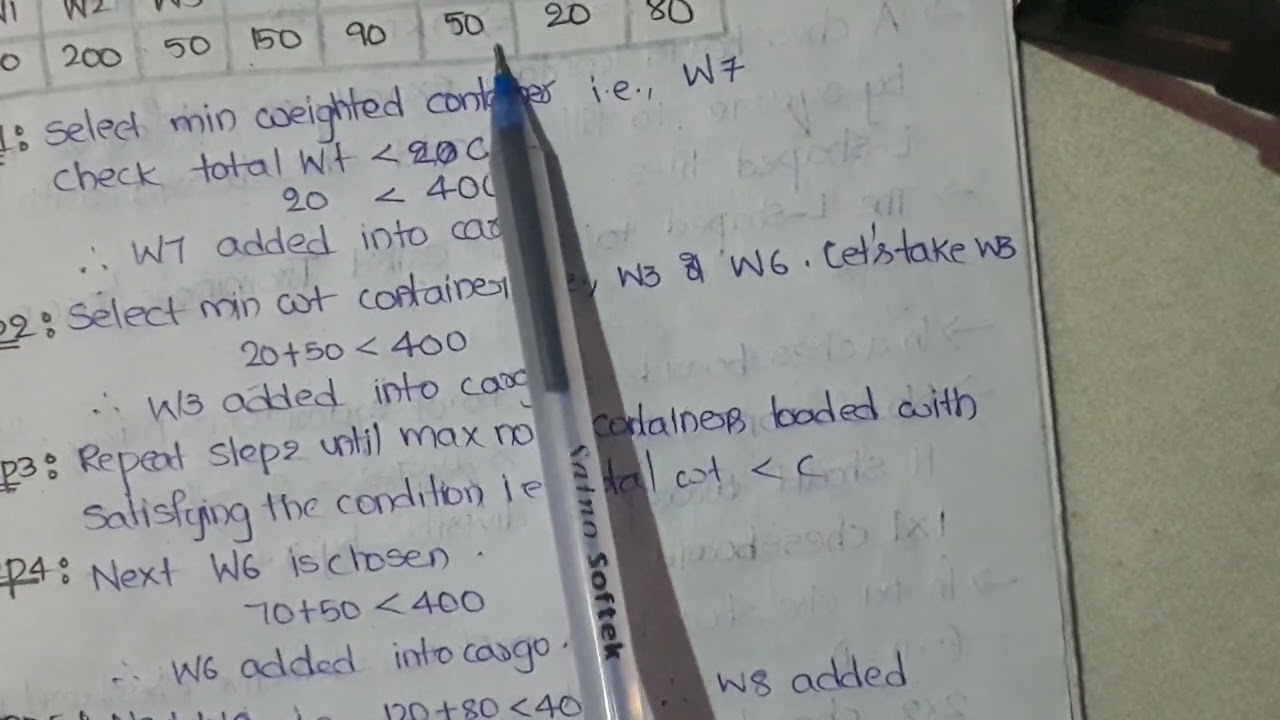 W2
0 200 50 150 90 50 20 80
1: Select min weighted i.e., W7
check total Wt < C
20 < 400
∴ W7 added into
2: Select min wt container W3 & W6. Let's take W3
20+50 < 400
∴ W3 added into
p3: Repeat step2 until max no loaded with
Satisfying the condition i.e wt < C
p4: Next W6 is chosen.
70+50 < 400
∴ W6 added into cargo.
120+80 < 40 ∴ W8 added
Saino Softek